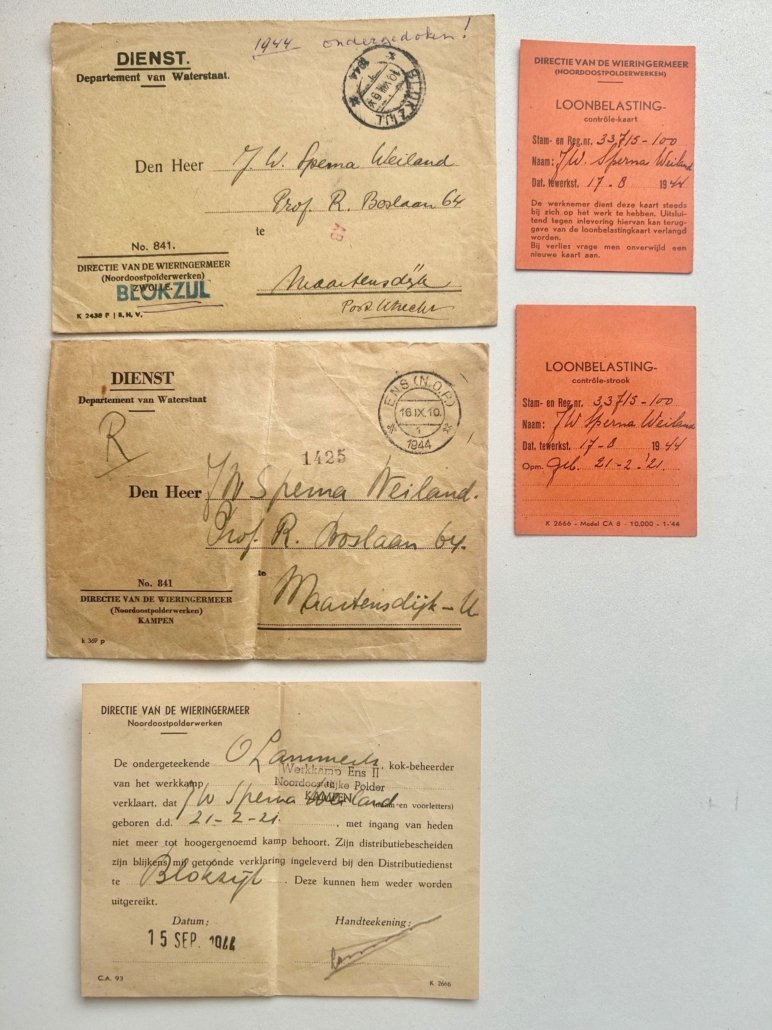 1944 ondergedoken!
DIENST.
Departement van Waterstaat.
BLOKZIJL
1944
Den Heer J. W. Sperna Weiland
Prof. R. Boslaan 64
te
No. 841.
DIRECTIE VAN DE WIERINGERMEER
(Noordoostpolderwerken)
ZWOLLE.
BLOKZIJL
Maartensdijk
Post Utrecht
K 2438 P | B. N. V.
DIENST
Departement van Waterstaat
R
ENS (N.O.P.)
16 IX. 10.
1
1944
1425
Den Heer JW Sperna Weiland.
Prof. R. Boslaan 64.
te
Maartensdijk - U
No. 841
DIRECTIE VAN DE WIERINGERMEER
(Noordoostpolderwerken)
KAMPEN
k 369 p
DIRECTIE VAN DE WIERINGERMEER
Noordoostpolderwerken
De ondergeteekende O Lammerts, kok-beheerder
van het werkkamp Werkkamp Ens II
Noordoostelijke Polder
KAMPEN
verklaart, dat JW Sperna Weiland (naam en voorletters)
geboren d.d. 21-2-21. , met ingang van heden
niet meer tot hoogergenoemd kamp behoort. Zijn distributiebescheiden
zijn blijkens mij getoonde verklaring ingeleverd bij den Distributiedienst
te Blokzijl. Deze kunnen hem weder worden
uitgereikt.
Datum: Handteekening:
15 SEP. 1944
C.A. 93 K 2666
DIRECTIE VAN DE WIERINGERMEER
(NOORDOOSTPOLDERWERKEN)
LOONBELASTING-
contrôle-kaart
Stam- en Reg.nr. 33715-100
Naam: JW. Sperna Weiland
Dat. tewerkst. 17-8 1944
De werknemer dient deze kaart steeds
bij zich op het werk te hebben. Uitslui-
tend tegen inlevering hiervan kan terug-
gave van de loonbelastingkaart verlangd
worden.
Bij verlies vrage men onverwijld een
nieuwe kaart aan.
LOONBELASTING-
contrôle-strook
Stam- en Reg.nr. 33715-100
Naam: JW Sperna Weiland
Dat. tewerkst. 17-8 1944
Opm. Geb. 21-2-'21.
K 2666 - Model CA 8 - 10.000 - 1-'44